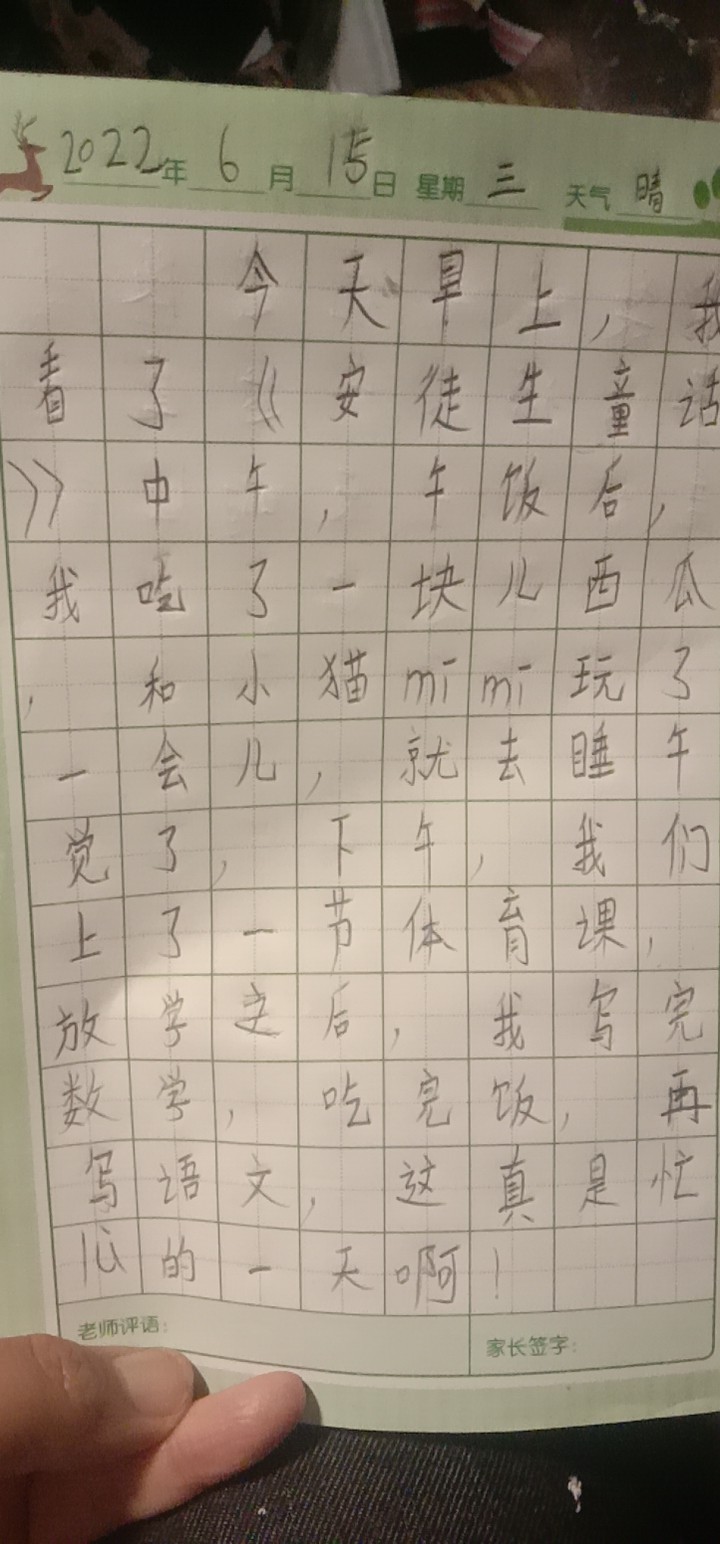 2022年6月15日 星期三 天气晴
今天早上，我
看了《安徒生童话
》中午，午饭后，
我吃了一块儿西瓜
，和小猫mīmī玩了
一会儿，就去睡午
觉了，下午，我们
上了一节体育课，
放学之后，我写完
数学，吃完饭，再
写语文，这真是忙
的一天啊！
老师评语： 家长签字：